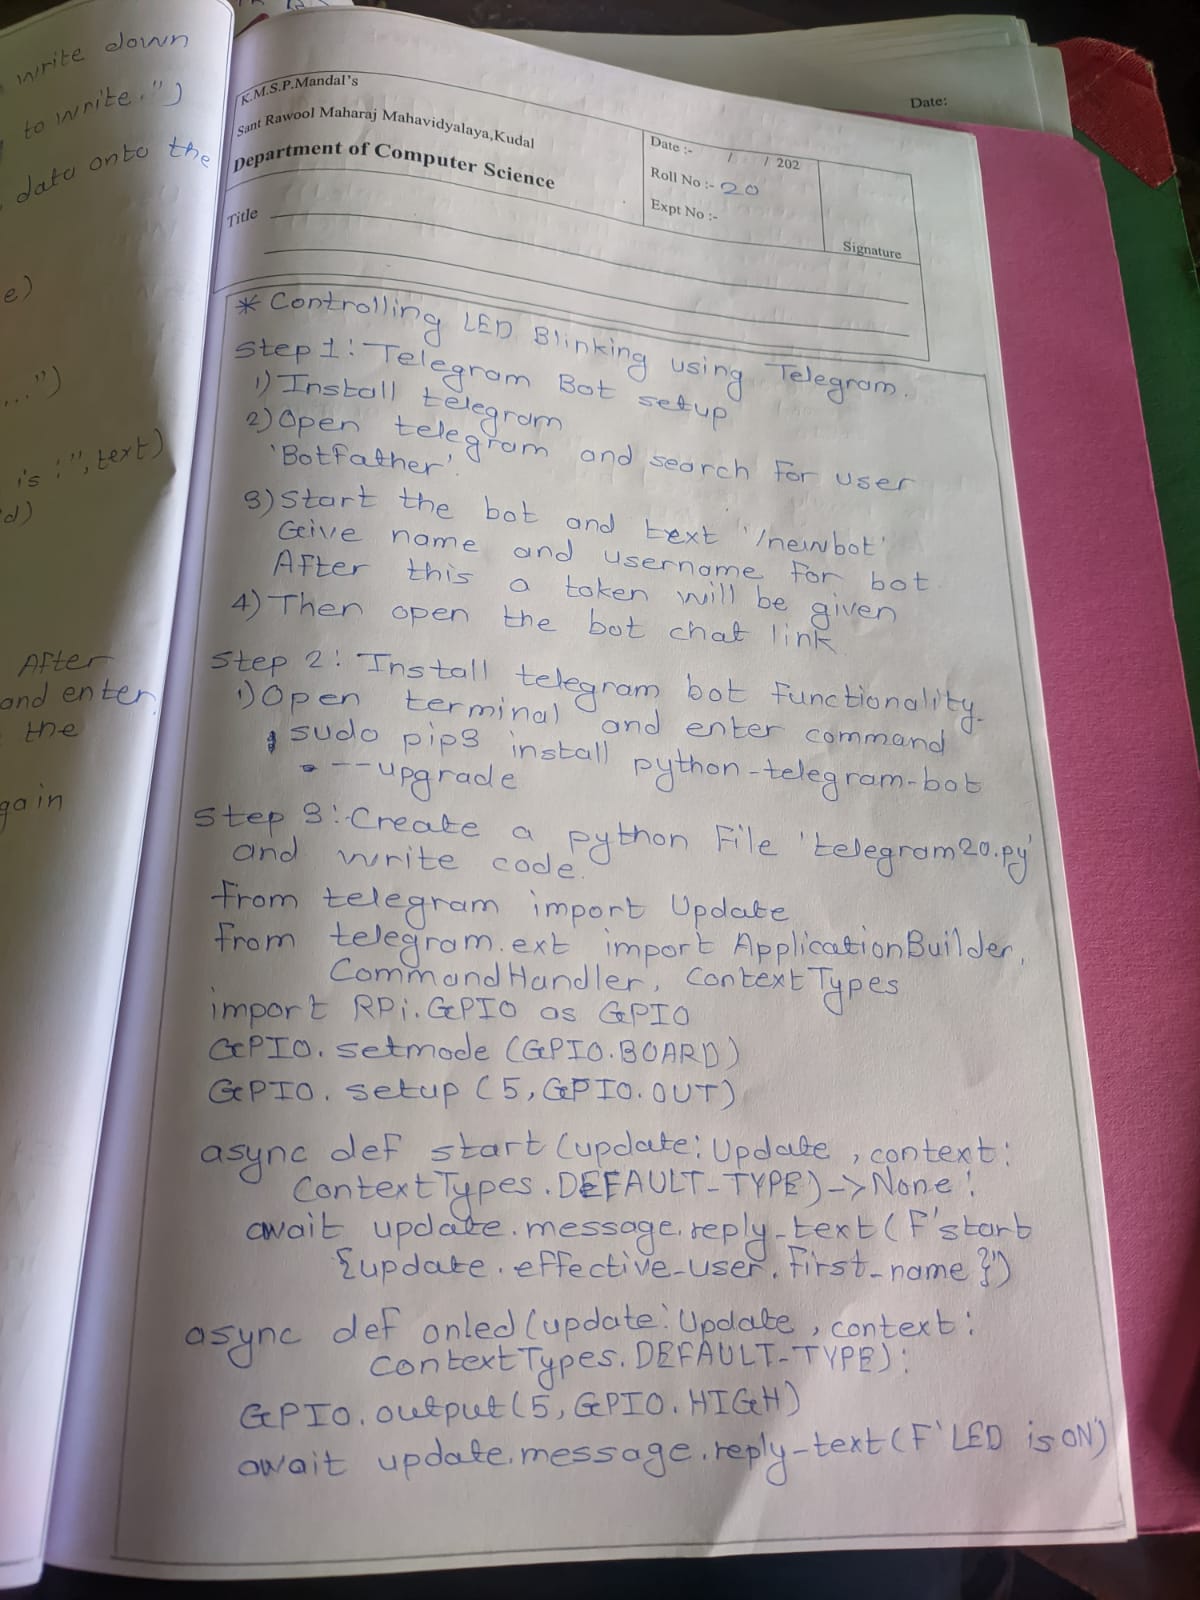 write down
to write.")
data onto the
e)
...")
is :", text)
d)
After
and enter
the
gain
Date:
K.M.S.P.Mandal's
Sant Rawool Maharaj Mahavidyalaya,Kudal
Department of Computer Science
Date :- / / 202
Roll No :- 20
Expt No :-
Signature
Title
* Controlling LED Blinking using Telegram.
Step 1: Telegram Bot setup
1) Install telegram
2) Open telegram and search for user
'BotFather'.
3) Start the bot and text '/newbot'
Give name and username for bot
After this a token will be given
4) Then open the bot chat link
Step 2: Install telegram bot functionality.
1) Open terminal and enter command
sudo pip3 install python-telegram-bot
--upgrade
Step 3:-Create a python file 'telegram20.py'
and write code.
from telegram import Update
from telegram.ext import ApplicationBuilder,
CommandHandler, ContextTypes
import RPi.GPIO as GPIO
GPIO.setmode (GPIO.BOARD)
GPIO.setup (5, GPIO.OUT)
async def start (update: Update, context:
ContextTypes.DEFAULT_TYPE) -> None:
await update.message.reply_text (F'start
{update.effective_user.first_name}')
async def onled (update: Update, context:
ContextTypes.DEFAULT_TYPE):
GPIO.output (5, GPIO.HIGH)
await update.message.reply_text (F'LED is ON')